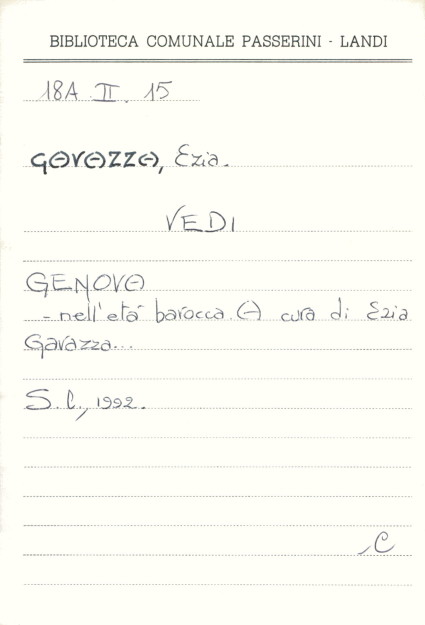 BIBLIOTECA COMUNALE PASSERINI - LANDI
18A II. 15
GAVAZZA, Ezia.
VEDI
GENOVA
- nell'età barocca. A cura di Ezia
Gavazza...
S.l., 1992.
C